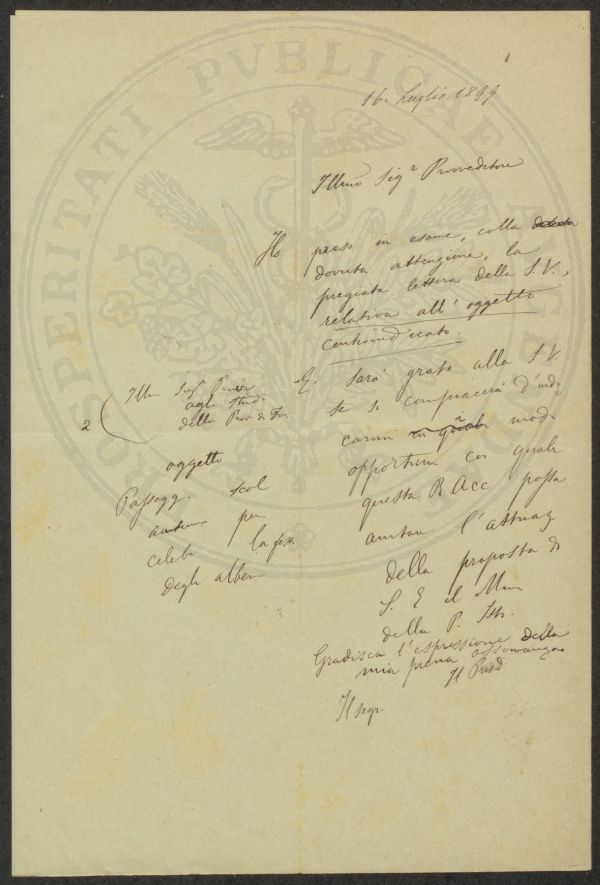 PROSPERITATI PVBLICAE AVGENDAE
16. Luglio 1899
Illmo Sigr Provveditore
Ho preso in esame, colla
dovuta attenzione, la
pregiata lettera della S.V.,
relativa all'oggetto
controindicato.
E. sarò grato alla S V
se si compiacerà d'indi-
carmi in quali modi
opportuni coi quali
questa R Acc possa
aiutare l'attuaz
della proposta di
S. E il Min
della P. Istr.
Gradisca l'espressione della
mia piena osservanza
Il Presid
Il segr.
2
Illmo Sigr Provv
agli Studi
della Prov di Fir
oggetto
Passegg. scol
per
celebr la festa
degli alberi